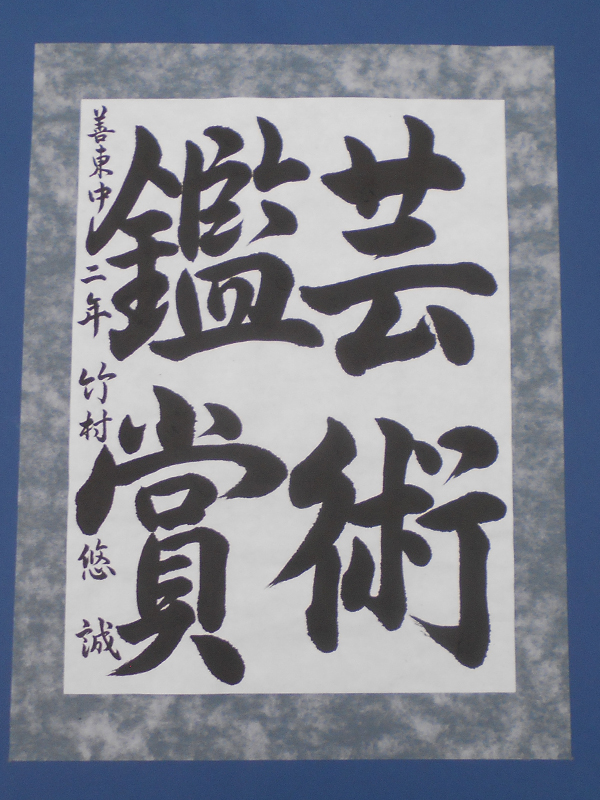 芸術
鑑賞
善東中 二年 竹村 悠誠